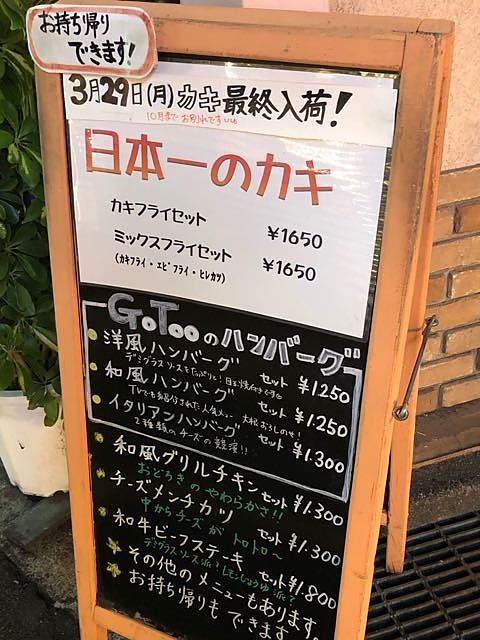 お持ち帰り
できます!
3月29日(月)カキ最終入荷!
10月まで お別れです
日本一のカキ
カキフライセット ¥1650
ミックスフライセット ¥1650
(カキフライ・エビフライ・ヒレカツ)
GoTooのハンバーグ
洋風ハンバーグ セット ¥1.250
デミグラスソースをたっぷりと!目玉焼付きです
和風ハンバーグ セット ¥1.250
TVでも紹介された人気メニュー 大根おろしのせ!
イタリアンハンバーグ セット ¥1.300
2種類のチーズの競演!!
和風グリルチキン セット ¥1.300
おどろきのやわらかさ!!
チーズメンチカツ セット ¥1.300
中からチーズが トロトロ〜
和牛ビーフステーキ セット ¥1.800
デミグラスソース派?レモンじょうゆ派?
その他のメニューもあります
お持ち帰りもできます